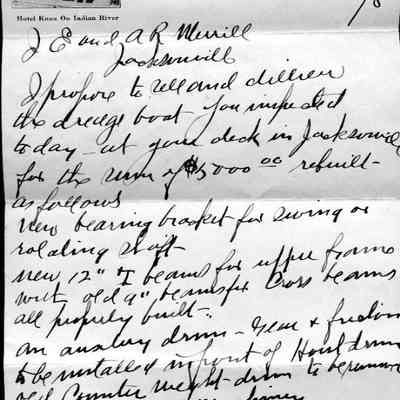 Hotel Knox On Indian River
J E and A R Merrill
Jacksonvill
I propose to sell and deliver
the dredge boat you inspected
today - at your dock in Jacksonvill
for the sum of $5000 00 rebuilt -
as follows
New bearing bracket for swing or
rolating shaft
new 12" I beams for upper frame
with old 9" beams for Cross beams
all properly built -
an auxilary drum - gear & friction
to be installed in front of Hoist drum
old Counter weight drum to be